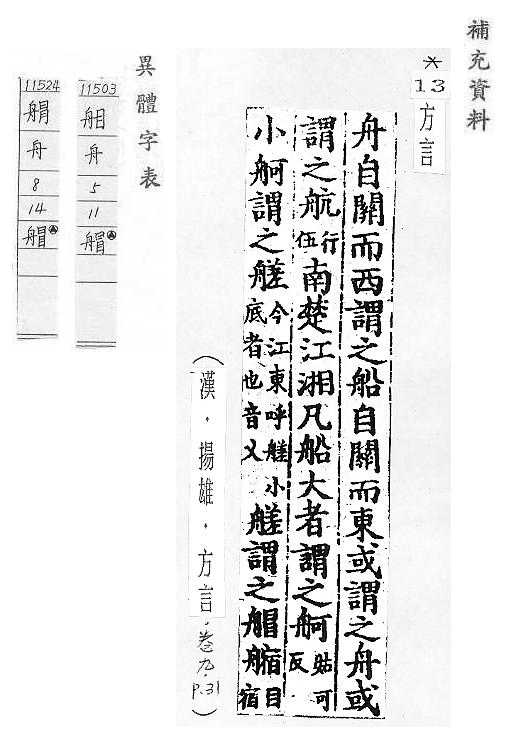 補充資料
*13
方言
舟自關而西謂之船自關而東或謂之舟或
謂之航行伍南楚江湘凡船大者謂之舸姑可反
小舸謂之艖今江東呼艖小底者也音叉小艖謂之艒䑿目宿
(漢．揚雄．方言．卷九．P.31)
異體字表
11503
舟
5
11
艒
11524
舟
8
14
艒